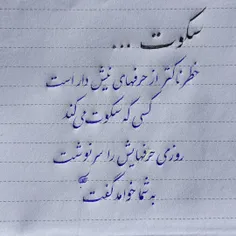 سکوت ...
خطرناکتر از حرفهای نیش دار است
کسی که سکوت می کند
روزی حرفهایش را سرنوشت
به شما خواهد گفت